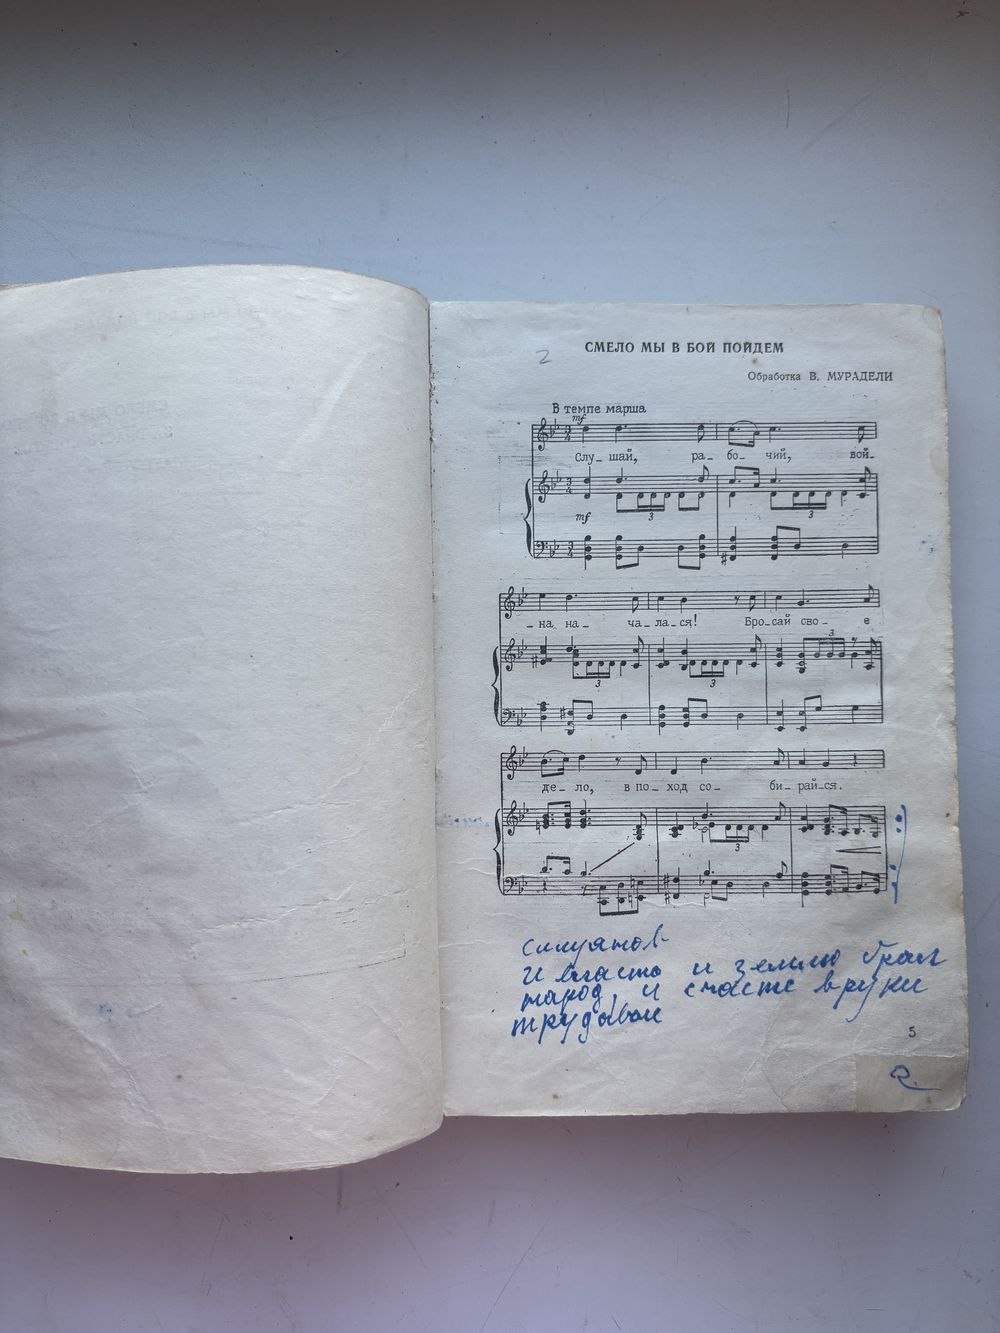 2
СМЕЛО МЫ В БОЙ ПОЙДЕМ
Обработка В. МУРАДЕЛИ
В темпе марша
mf
Слу_ шай, ра_ бо_ чий, вой_
3 3
mf
_ на на_ ча_ ла_ся! Бро_сай сво_ е
3
3 3
де_ ло, в по_ ход со_ би_ рай_ся.
3
и власть и землю брал
народ, и счасте в руки
5
2.